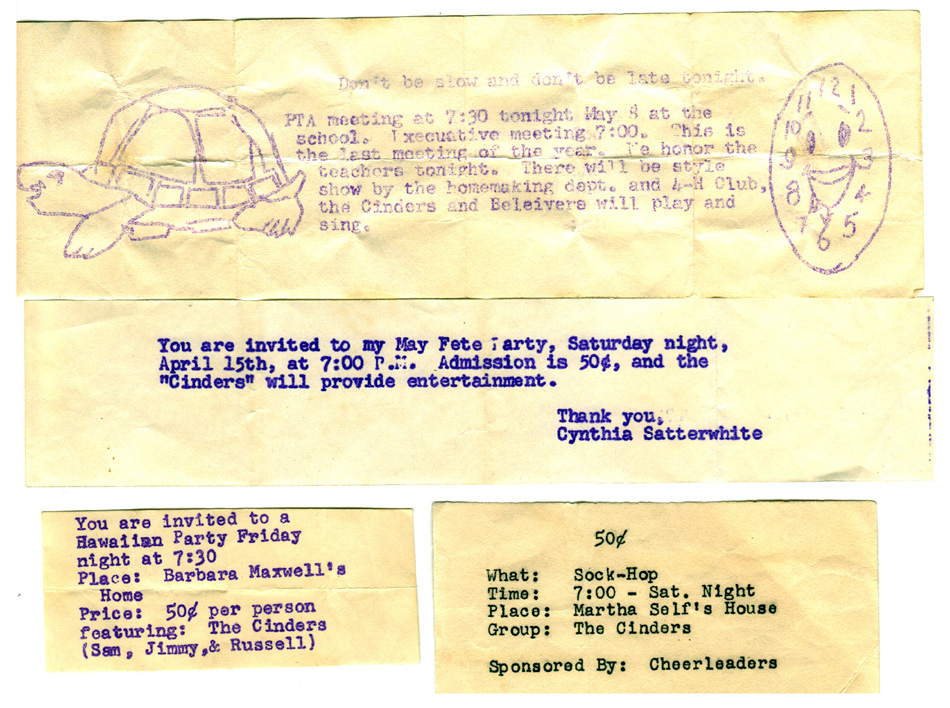 Don't be slow and don't be late tonight.
PTA meeting at 7:30 tonight May 8 at the
school. Execuative meeting 7:00. This is
the last meeting of the year. We honor the
teachers tonight. There will be style
show by the homemaking dept. and 4-H Club,
the Cinders and Beleivers will play and
sing.
12
11 1
10 2
9 3
8 4
7 5
6
You are invited to my May Fete Party, Saturday night,
April 15th, at 7:00 P.M. Admission is 50¢, and the
"Cinders" will provide entertainment.
Thank you,
Cynthia Satterwhite
You are invited to a
Hawaiian Party Friday
night at 7:30
Place: Barbara Maxwell's
Home
Price: 50¢ per person
featuring: The Cinders
(Sam, Jimmy,& Russell)
50¢
What: Sock-Hop
Time: 7:00 - Sat. Night
Place: Martha Self's House
Group: The Cinders
Sponsored By: Cheerleaders